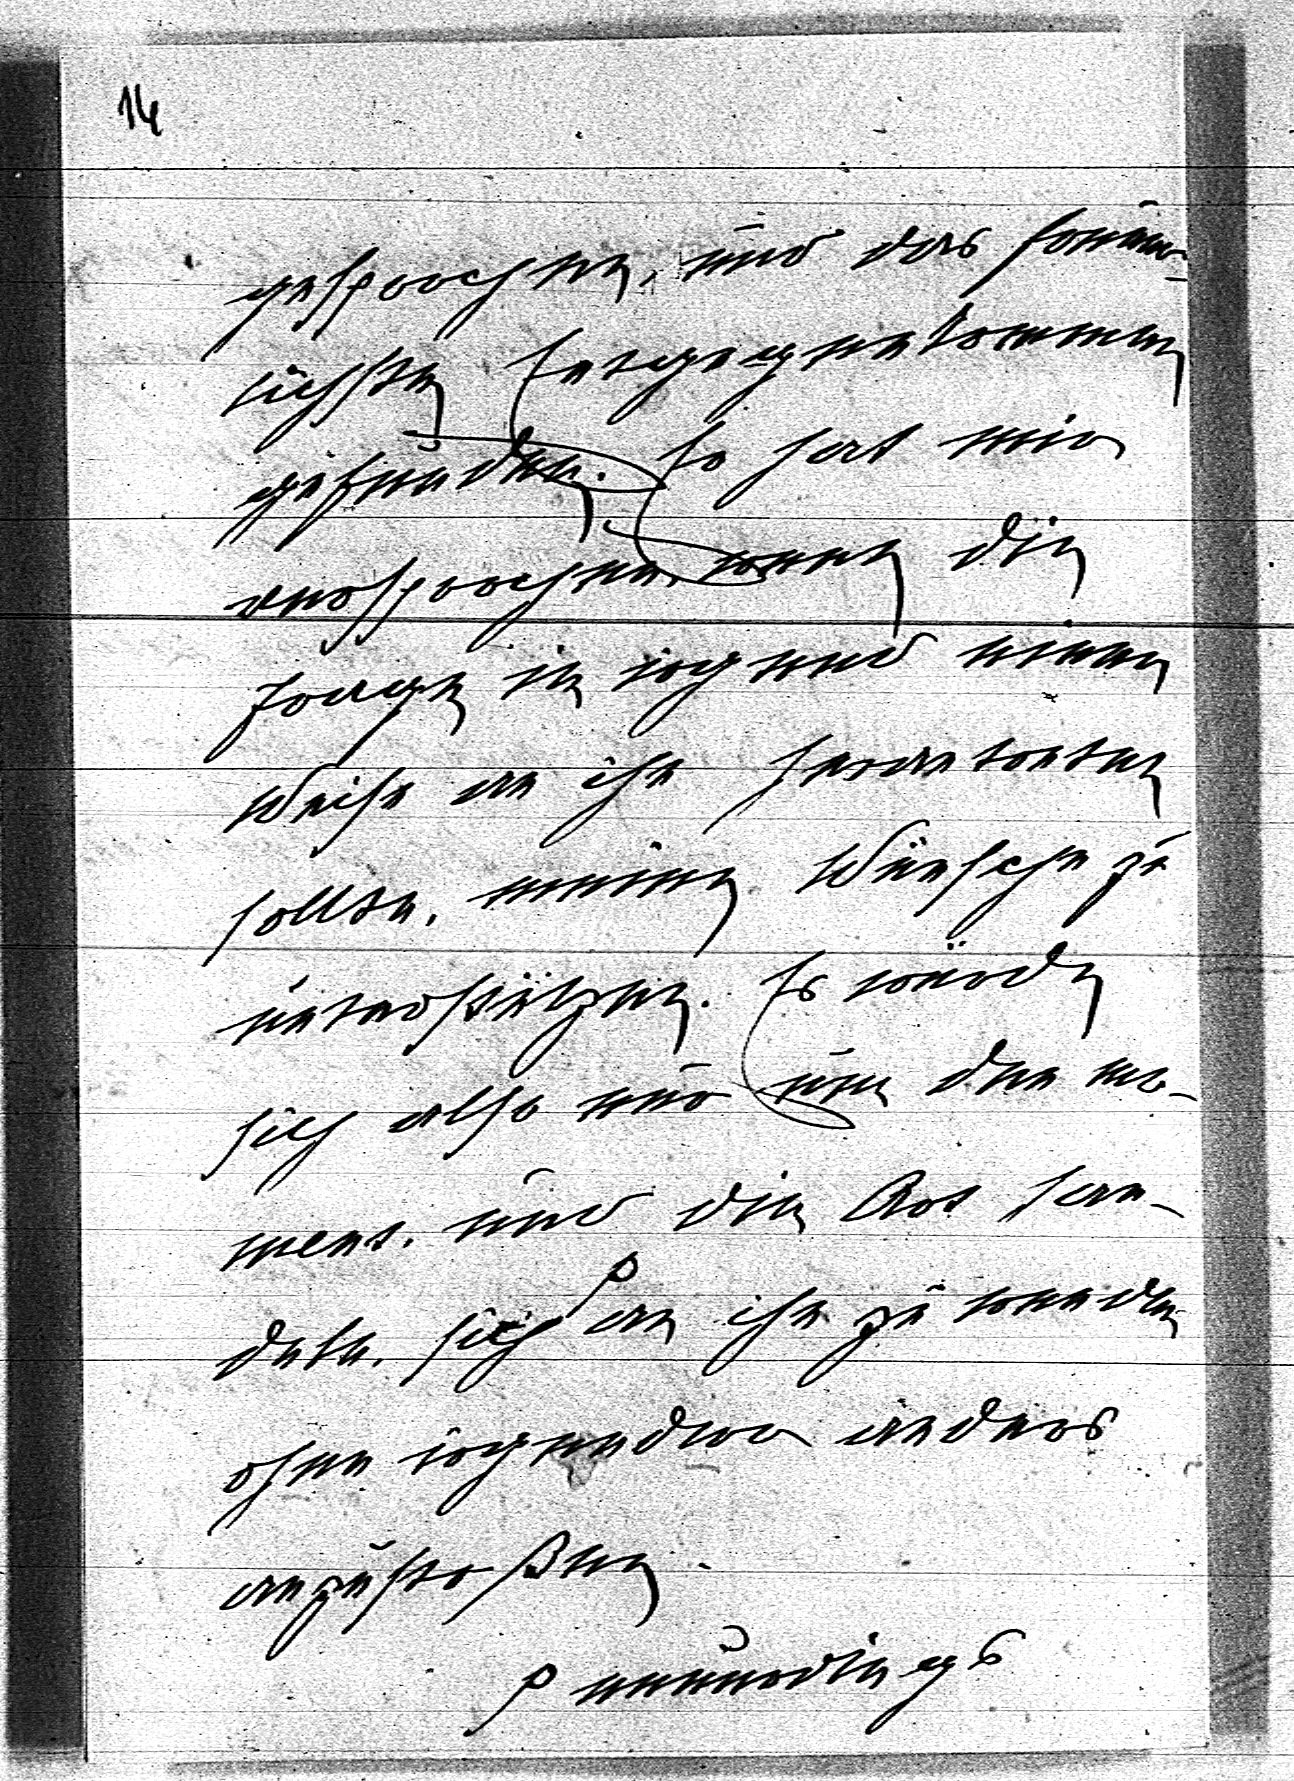 14
gesprochen, und das freund-
lichste Entgegenkommen
gefunden. Er hat mir
versprochen, wenn die
Frage in irgend einer
Weise an ihn herantreten
sollte, meine Wünsche zu
unterstützen. Es würde
sich also nur um den mo-
ment, und die Art han-
deln, sich an ihn zu wenden
ohne irgendwo anders
anzustoßen.
neuerdings